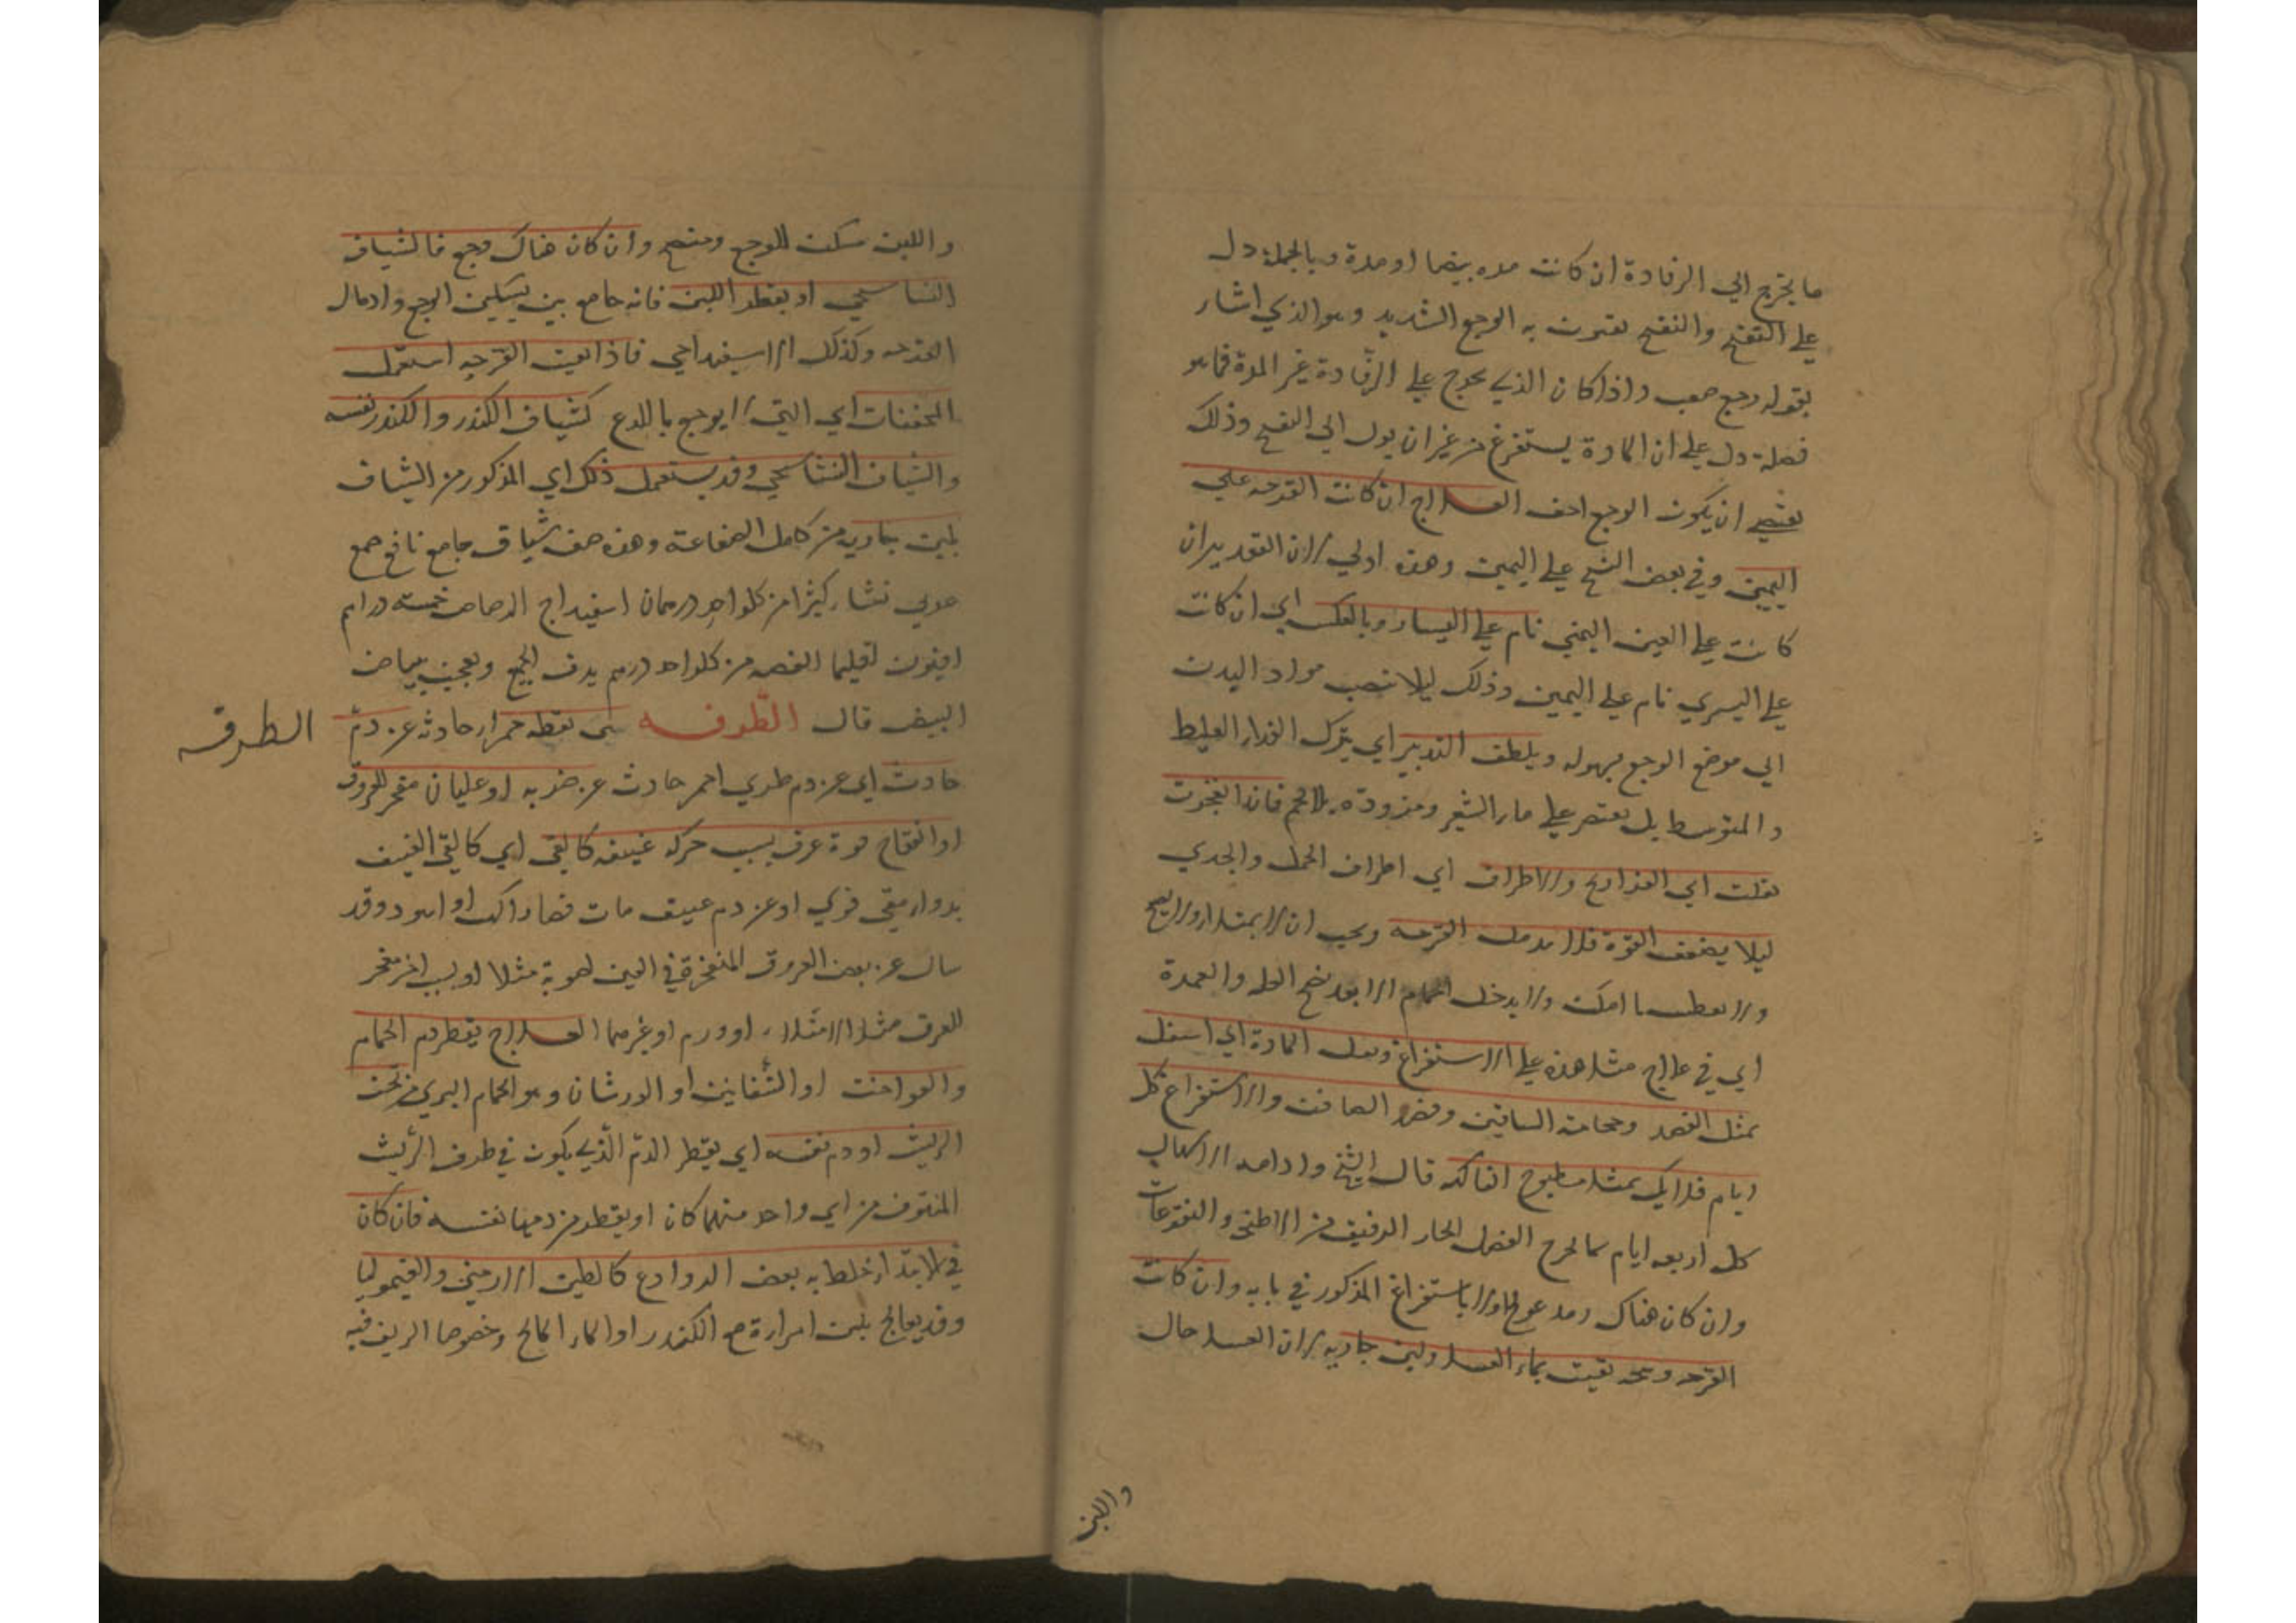 ما يخرج الي الرفادة ان كانت مده بيضا او مدة وبالجملة دل
علي التقيح والتقيح يقترن به الوجع الشديد وهو الذي اشار
بقوله وجع صعب واذا كان الذي يخرج علي الرفادة غير المدة فما هو
فضلة دل علي ان المادة يستفرغ من غير ان يول الي التقيح وذلك
يقتضي ان يكون الوجع اخف العلاج ان كانت القرحه علي
اليمين وفي بعض النسخ علي اليمين وهذه اولي لان التقدير ان
كانت علي العين اليمني نام علي اليسار وبالعكس اي ان كانت
علي اليسري نام علي اليمين وذلك ليلا تنصب مواد البدن
الي موضع الوجع بسهوله ويلطف التدبير اي يترك الغذاء الغليظ
والمتوسط بل يقتصر علي ماء الشعير ومزودة بلا لحم فاذا انفجرت
نقلت الي الفراريج والاطراف اي اطراف الحمل والجدي
ليلا يضعف القوة فلا تندمل القرحه ويجب ان لا يمتلا ولا يصيح
ولا يعطس ما امكن ولا يدخل الحمام الا بعد نضج العله والعمدة
اي في علاج مثل هذه علي الاستفراغ وميل المادة الي اسفل
بمثل الفصد وحجامة الساقين وفصد الصافن والاستفراغ كل
ايام قلايل بمثل مطبوخ الفاكه قال الشيخ وادامه الاسهال
كل اربعه ايام بما يخرج الفضل الحار الرقيق من الاطبخه والنقوعات
وان كان هناك رمد عولج اولا باستفراغ المذكور في بابه وان كانت
القرحه وسخه نقيت بماء العسل ولبن جاريه لان العسل جال
واللبن
واللبن مسكن للوجع ومنضج وان كان هناك وجع فالشياف
النشاستجي او يقطر اللبن فانه جامع بين تسكين الوجع وادمال
القرحه وكذلك الاسفيداجي فاذا نقيت القرحه استعمل
المجففات اي التي لا يوجع باللدع كشياف الكندر والكندر نفسه
والشياف النشاستجي وقد يستعمل ذلك اي المذكور من الشياف
بلبن جاريه من كامل الصناعة وهذه صفة شياف جامع نافع صمغ
عربي نشا كثيرا من كل واحد درهمان اسفيداج الرصاص خمسة دراهم
افيون اقليميا الفضه من كل واحد درهم يدق الجميع ويعجن ببياض
البيض قال الطرفه هي نقطه حمراء حادثه عن دم
الطرفه
حادث اي عن دم طري احمر حادث عن ضربه او غليان مفجر للعروق
او انفتاح فوهة عرق بسبب حركه عنيفه كالقي اي كالقي العنيف
بدواء مقي قوي او عن دم عتيق مات فصار اكهب او اسود وقد
سال عن بعض العروق المنفجرة في العين لضربة مثلا او لسبب اخر مفجر
للعرق مثل الامتلاء او ورم او غيرهما العلاج يقطر دم الحمام
والفواخت او الشفانين او الورشان وهو الحمام البري من تحت
الريش او دم نفسه اي يقطر الدم الذي يكون في طرف الريش
المنتوف من اي واحد منهما كان او يقطر من دمها نفسه فان كان
في الابتداء خلط به بعض الروادع كالطين الارمني والقيموليا
وقد يعالج بلبن امراة مع الكندر او الماء المالح وخصوصا الريف فيه